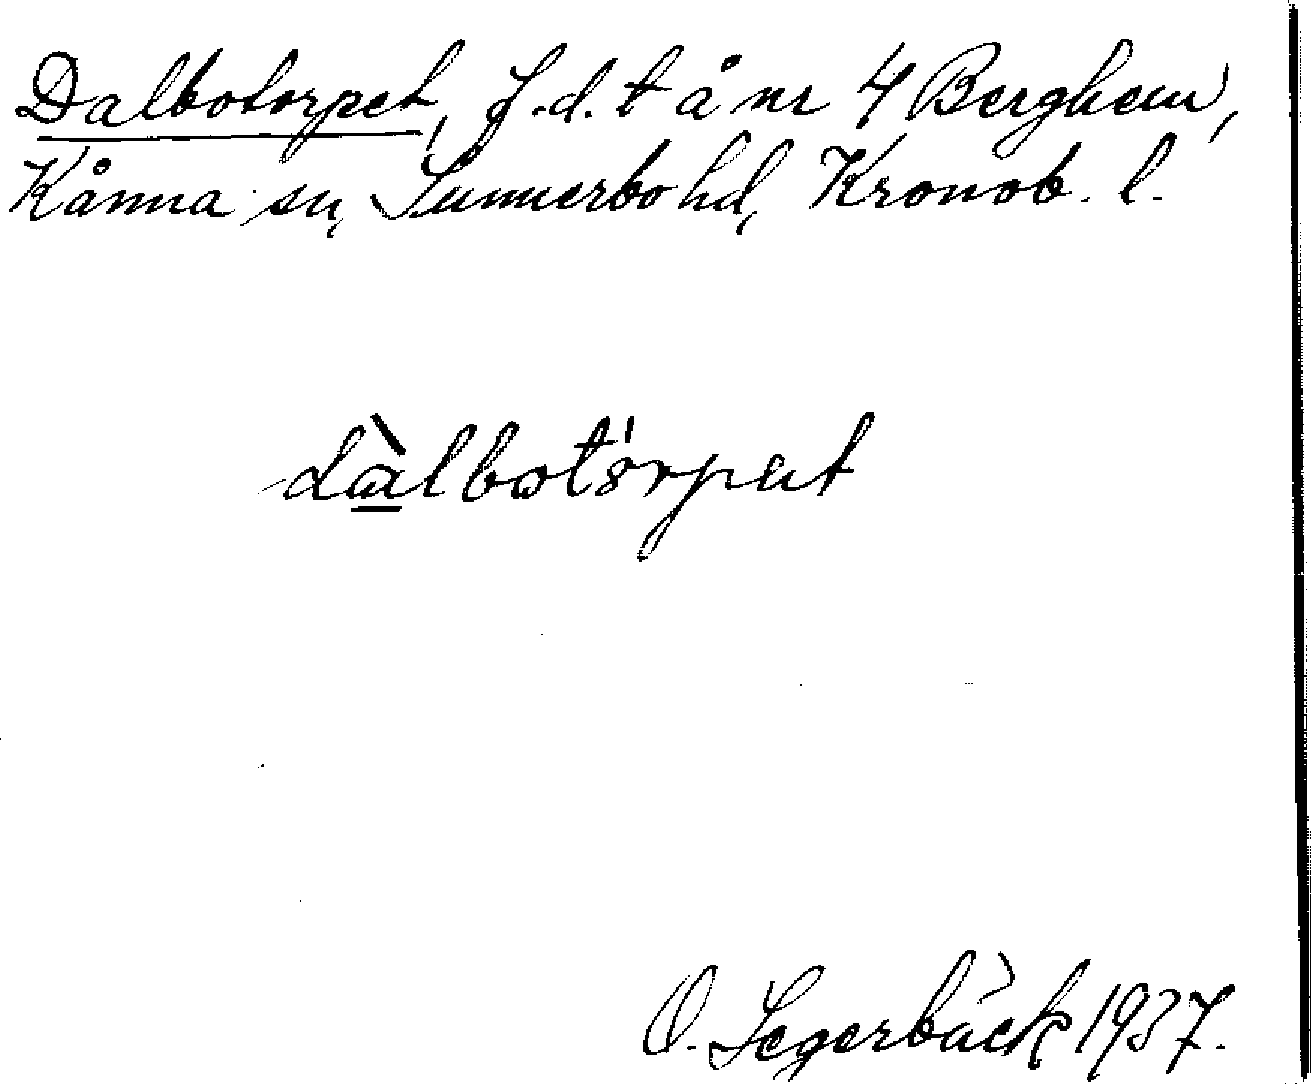 Dalbotorpet, f.d. t å nr 4 Berghem,
Kånna sn, Sunnerbo hd, Kronob. l.
dàlbot'orpet
O. Segerbäck 1937.